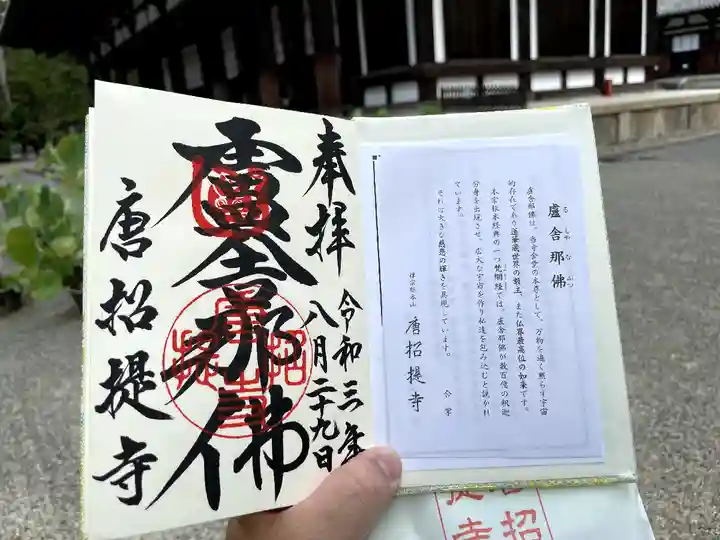 奉拝
令和三年
八月二十九日
盧舎那佛
唐招提寺
盧舎那佛
るしゃなぶつ
盧舎那佛は、当寺金堂の本尊として、万物を遍く照らす宇宙
的存在であり蓮華蔵世界の教主、また仏界最高位の如来です。
本宗根本経典の一つ梵網経では、盧舎那佛が数百億の釈迦
分身を出現させ、広大な宇宙を作り私達を包み込むと説かれ
ています。
それは大きな慈悲の輝きを具現しています。
合掌
律宗総本山
唐招提寺
唐招
提寺